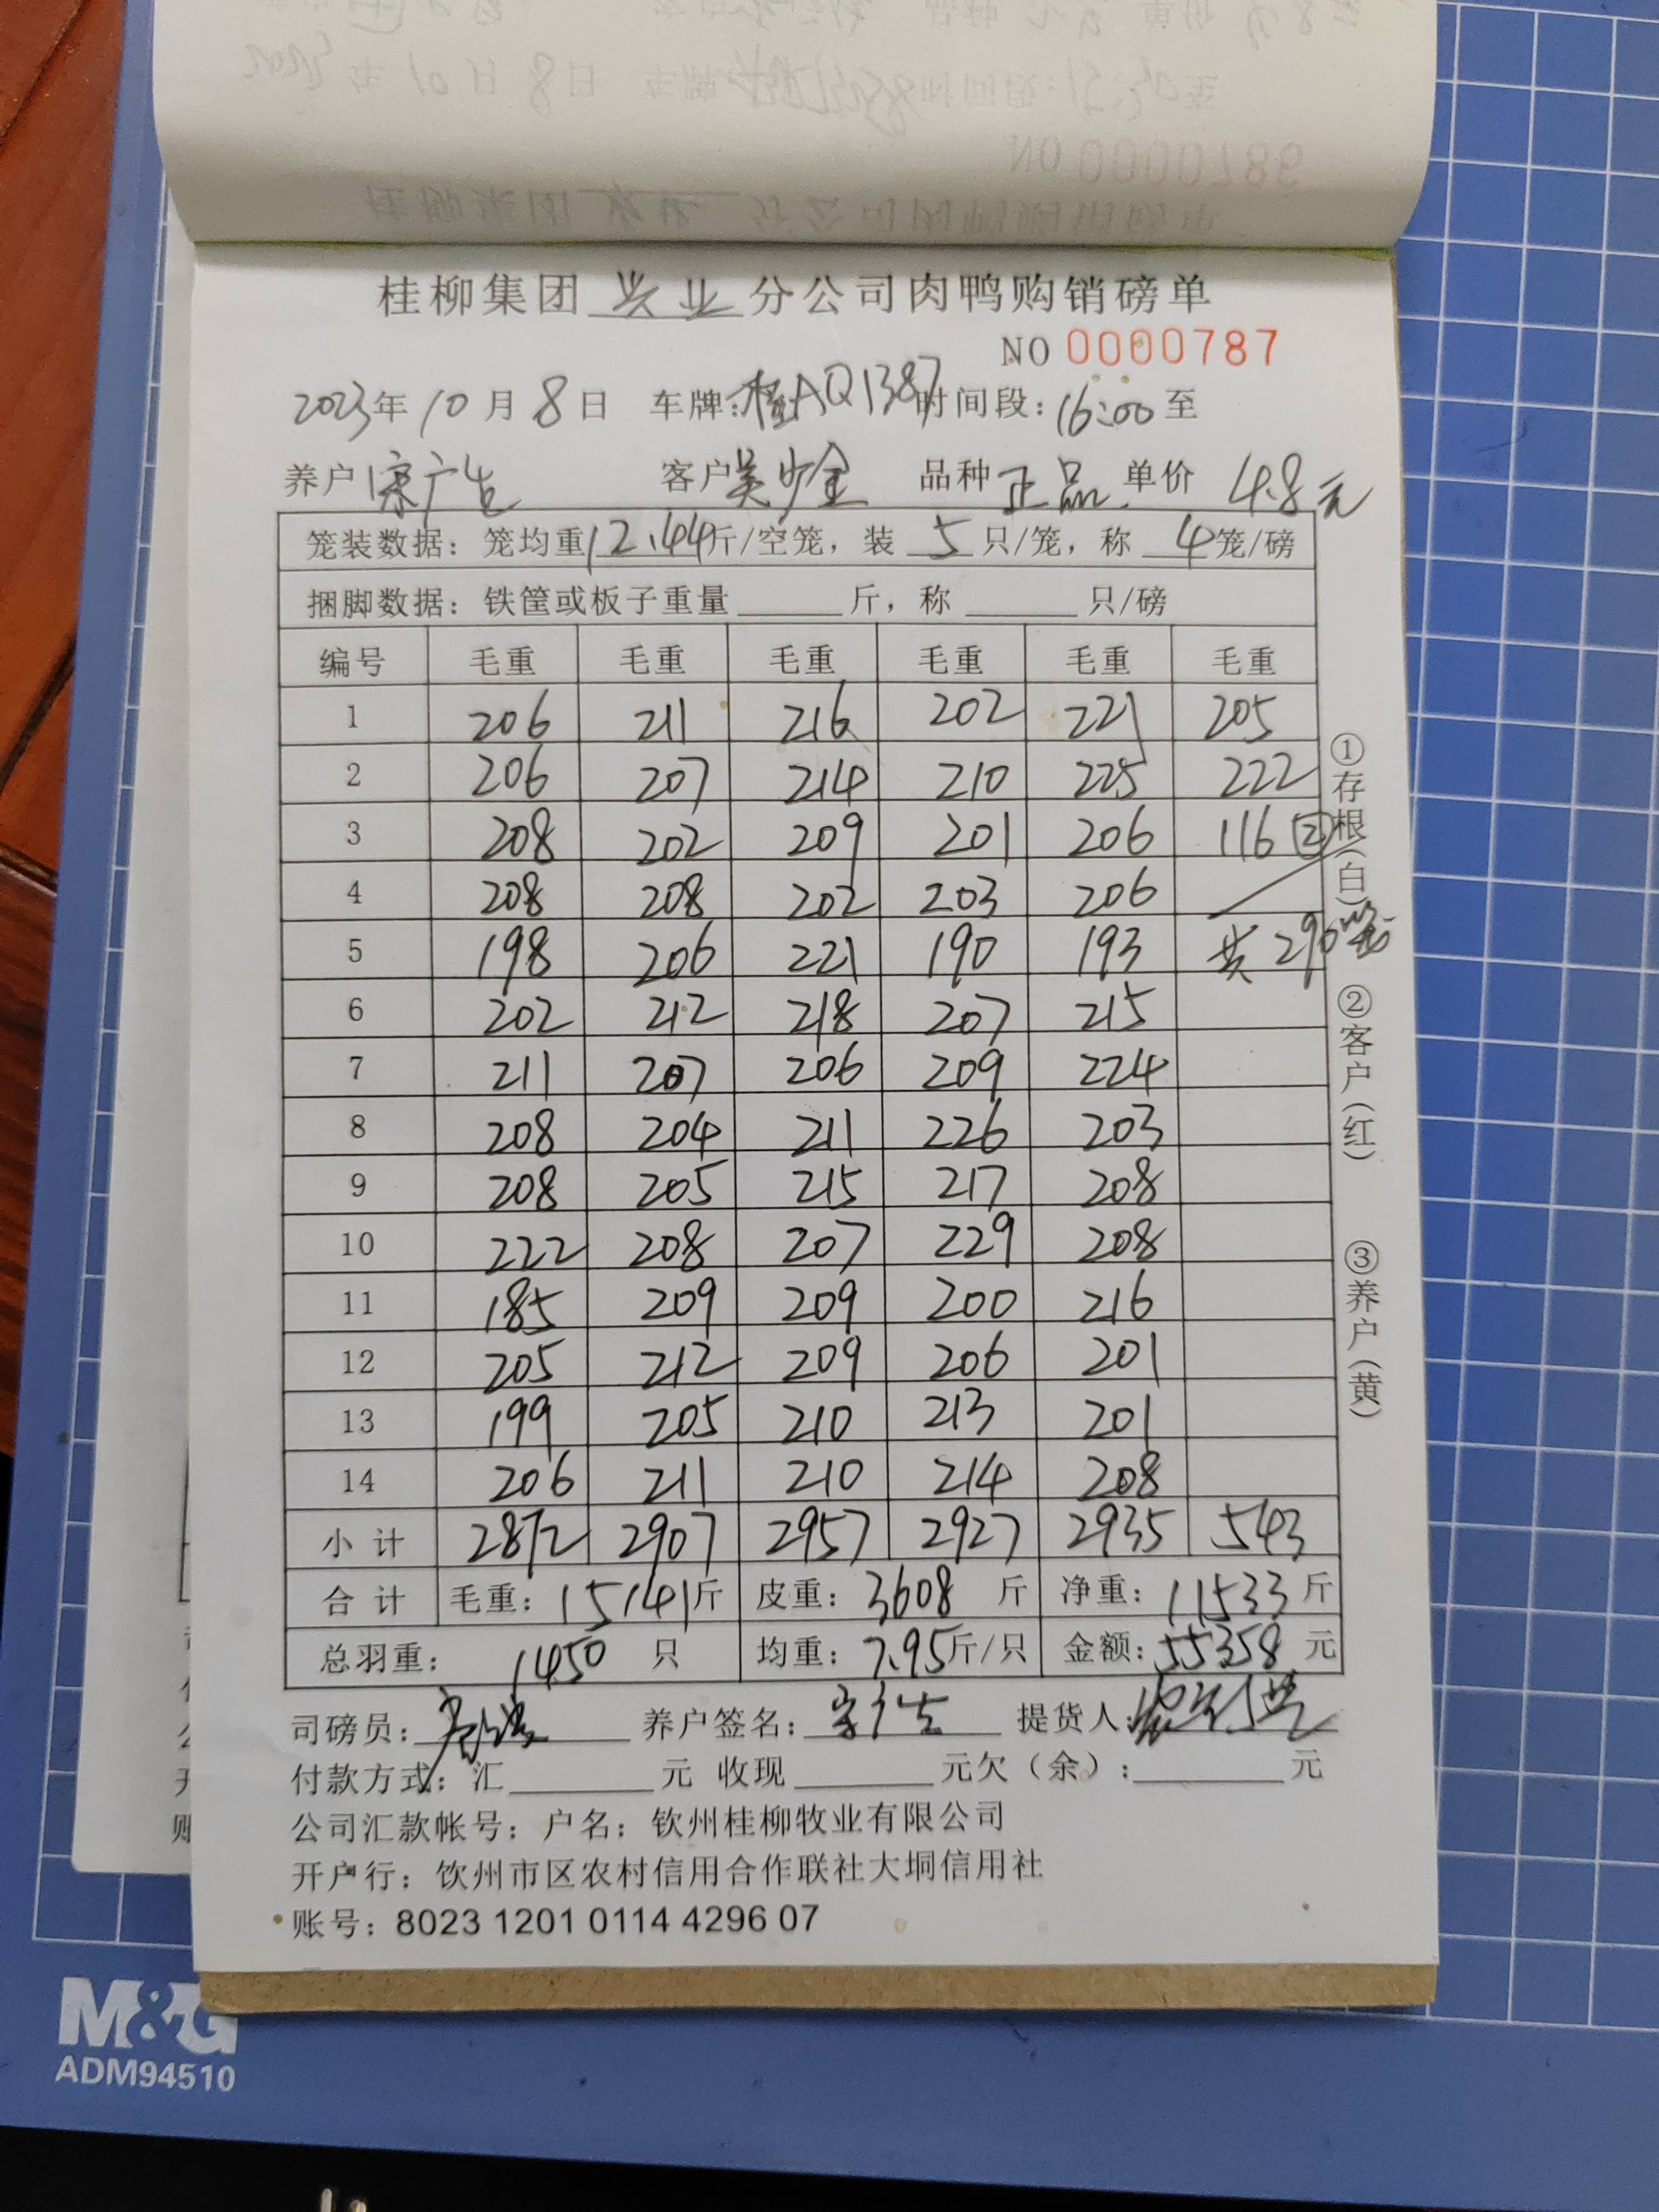 桂柳集团兴业分公司肉鸭购销磅单
NO 0000787
2023年10月8日 车牌:桂AQ1387时间段:16:00至
养户 广生 客户吴少金 品种正品 单价 4.8元
笼装数据: 笼均重12.44斤/空笼, 装 5 只/笼, 称 4笼/磅
捆脚数据: 铁筐或板子重量______斤, 称______只/磅
编号 毛重 毛重 毛重 毛重 毛重 毛重
1 206 211 216 202 221 205
2 206 207 214 210 225 222
3 208 202 209 201 206 116 ②
4 208 208 202 203 206
5 198 206 221 190 193 共 290笼
6 202 212 218 207 215
7 211 207 206 209 224
8 208 204 211 226 203
9 208 205 215 217 208
10 222 208 207 229 208
11 185 209 209 200 216
12 205 212 209 206 201
13 199 205 210 213 201
14 206 211 210 214 208
小计 2872 2907 2957 2927 2935 543
合计 毛重: 15141斤 皮重: 3608 斤 净重: 11533斤
总羽重: 1450 只 均重: 7.95斤/只 金额: 55358 元
司磅员: 养户签名: 广生 提货人:
付款方式: 汇______元 收现______元欠(余):______元
公司汇款帐号: 户名: 钦州桂柳牧业有限公司
开户行: 钦州市区农村信用合作联社大垌信用社
账号: 8023 1201 0114 4296 07
①存根(白) ②客户(红) ③养户(黄)
M&G
ADM94510